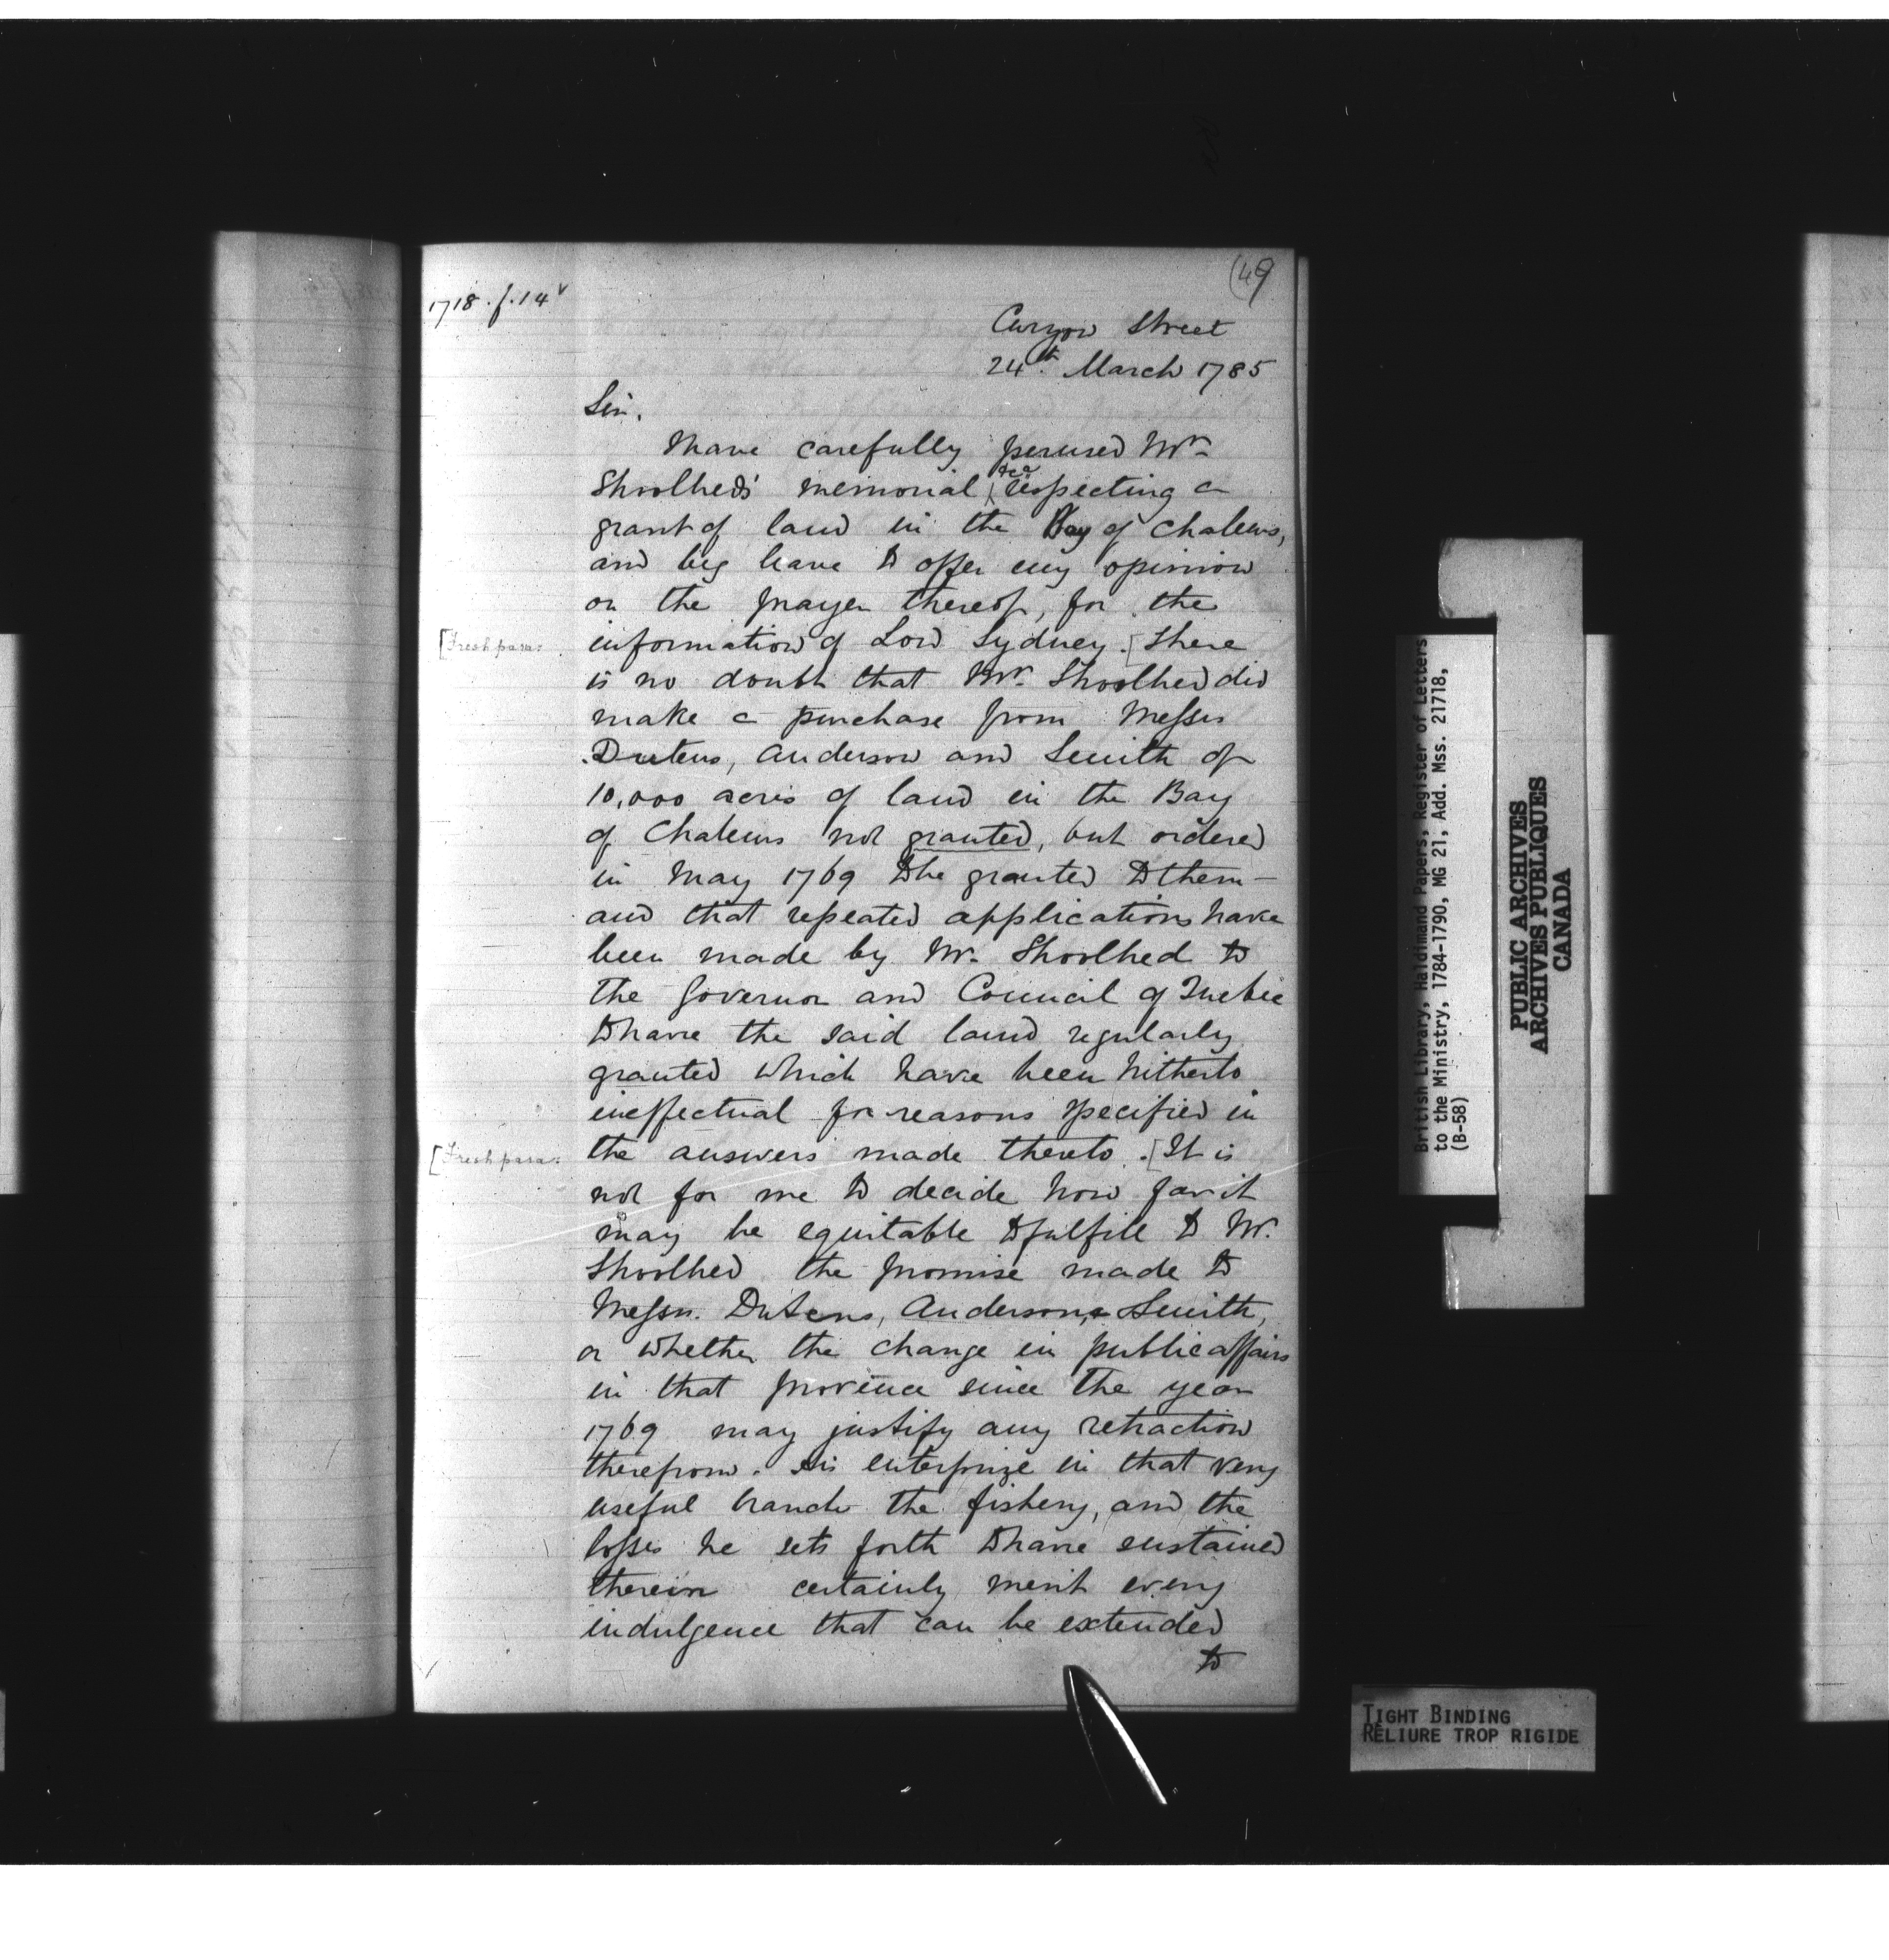 (49
1718.f.14v
Curzon Street
24th. March 1785
Sir.
I have carefully perused Mr.
Shoolheds' memorial &ca respecting a
grant of land in the Bay of Chaleurs,
and beg leave to offer my opinion
on the prayer thereof, for the
[Fresh para:
information of Lord Sydney. [There
is no doubt that Mr. Shoolhed did
make a purchase from Messrs
Dutens, Anderson and Smith of
10,000 acres of land in the Bay
of Chaleurs not granted, but ordered
in May 1769 to be granted to them –
and that repeated applications have
been made by Mr. Shoolhed to
the Governor and Council of Quebec
to have the said land regularly
granted which have been hitherto
ineffectual for reasons specified in
[Fresh para:
the answers made thereto. [It is
not for me to decide how far it
may be equitable to fulfill to Mr.
Shoolhed the promise made to
Messrs. Dutens, Anderson, & Smith,
or whether the change in public affairs
in that province since the year
1769 may justify any retraction
therefrom. His enterprize in that very
useful branch the fishery, and the
losses he sets forth to have sustained
therein certainly merit every
indulgence that can be extended
to
British Library, Haldimand Papers, Register of Letters
to the Ministry, 1784-1790, MG 21, Add. Mss. 21718,
(B-58)
PUBLIC ARCHIVES
ARCHIVES PUBLIQUES
CANADA
TIGHT BINDING
RELIURE TROP RIGIDE